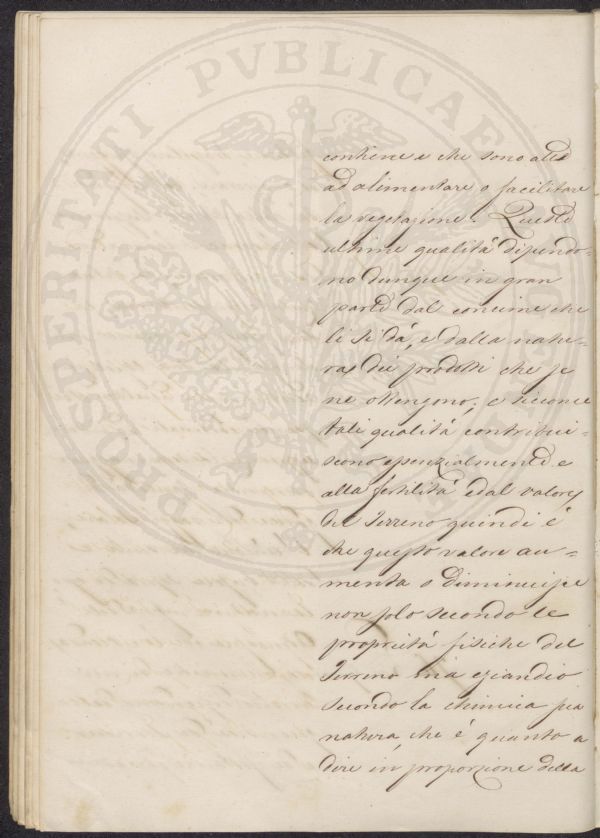 PROSPERITATI PVBLICAE
contiene e che sono atte
ad alimentare o facilitare
la vegetazione. Queste
ultime qualità dipendo-
no dunque in gran
parte dal concime che
li si dà, e dalla natu-
ra dei prodotti che se
ne ottengono; e siccome
tali qualità contribui-
scono essenzialmente e
alla fertilità e dal valore
del Terreno quindi è
che questo valore au-
menta o diminuisce
non solo secondo le
proprietà fisiche del
Terreno ma eziandio
secondo la chimica sua
natura che è quanto a
dire in proporzione della